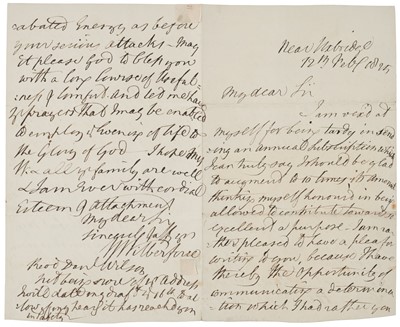 abated Energy as before
your serious attacks - May
it please God to bless you
with a long course of Useful-
ness & Comfort and let me have
yr prayers that I may be enabled
to employ ye Evening of life to
the Glory of God - I hope Mrs
W & all yr family are well
& I am Ever with cordial
Esteem & attachment
My dear Sir
sincerely Yours
W Wilberforce
Revd Danl Wilson
Near Uxbridge
My dear Sir
I am vexed at
myself for being tardy in send
ing an annual Subscription wch
I can truly say I should be glad
to augment to 10 times its amount
thinkg myself honourd in being
allowed to contribute towards so
excellent a purpose - I am ra
ther pleased to have a plea for
writing to you, because I have
thereby the opportunity of
communicating a determina
tion which I had rather you